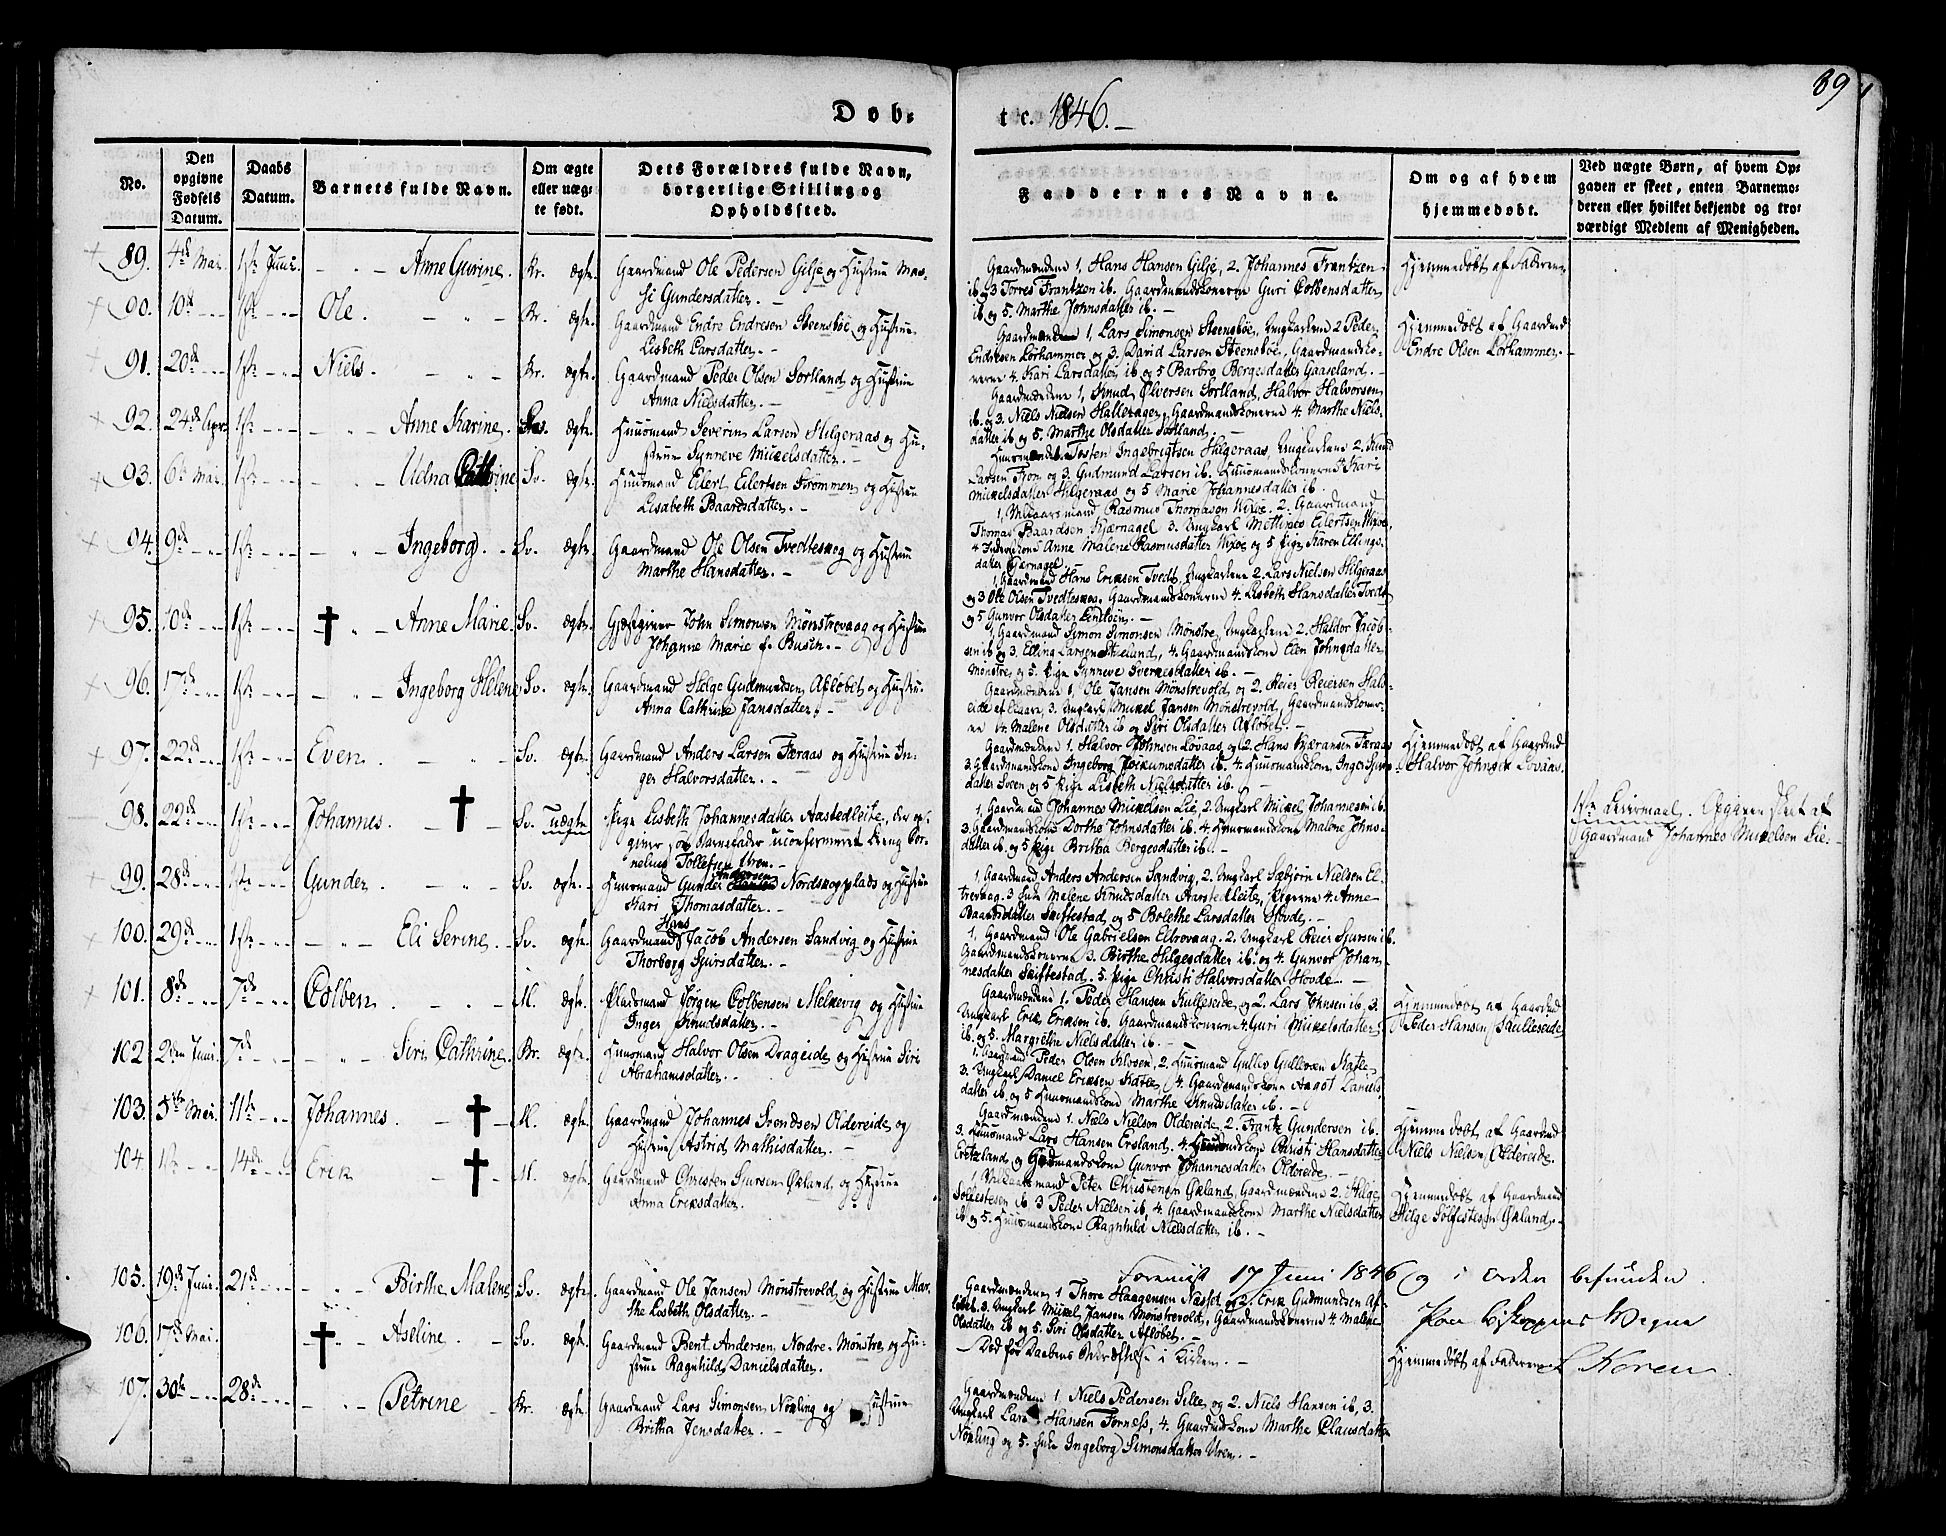 89
Døb-
te. 1846.
No.
Den opgivne Fødsels Datum.
Daabs Datum.
Barnets fulde Navn.
Om ægte eller uægte født.
Dets Forældres fulde Navn, borgerlige Stilling og Opholdssted.
Faddernes Navne.
Om og af hvem hjemmedøbt.
Ved uægte Børn, af hvem Opgaven er skeet, enten Barnemoderen eller hvilket bekjendt og troværdigt Medlem af Menigheden.
89. 4de Mai. 1ste Juni. Anne Gurine. Br. ægte. Gaardmand Ole Pedersen Gilje og Hustrue Mas-
si Gundersdatter.
Gaardmændene 1, Hans Hansen Gilje, 2. Johannes Frantzen
ib og 3 Torres Frantzen ib. Gaardmandskonerne Guri Colbensdatter
ib og 5. Marthe Johnsdatter ib.
Hjemmedøbt af Faderen
90. 10de 1ste Ole. Br. ægte. Gaardmand Endre Endresen Steensbøe og Hustrue
Lisbeth Larsdatter.
Gaardmand 1, Lars Simonsen Steensbøe, Ungkarlene 2 Peder
Endresen Lørhammer og 3. David Larsen Steensbøe, Gaardmandsko-
nerne 4. Kari Larsdatter ib og 5 Barbro Bergesdatter Gaaseland.
Hjemmedøbt af Gaardmd
Endre Olsen Lørhammer.
91. 20de 1ste Niels. Br. ægte. Gaardmand Peder Olsen Sortland og Hustrue
Anna Nielsdatter.
Gaardmændene 1, Knud Ølversen Sortland, Halvor Halvorsen
ib. og 3. Niels Nielsen Halleragen, Gaardmandskonerne 4. Marthe Niels-
datter ib og 5. Marthe Olsdatter Sortland.
92. 24de Apr. 1ste Anne Karine. ægte. Huusmand Severin Larsen Helgeraas og Hu-
strue Synneve Mickelsdatter.
Huusmænd Tosten Ingebrigtsen Helgeraas, Ungkarlene 2. Knud
Larsen From og 3. Gudmund Larsen ib. Huusmandskonerne 4 Kari
Mickelsdatter Helgeraas og 5 Marie Johannesdatter ib
93. 6te Mai. 1ste Udna Cathrine Sv. ægte. Huusmand Eilert Eilertsen Strømmen og Hustrue
Lisabeth Baardsdatter.
1, Vilkaarsmand Rasmus Thomason Vixøe. 2. Gaardmand
Thomas Baardsen Kjærnagel 3. Ungkarl Mettines Eilertsen Vixøe,
4 Anne Malene Rasmusdatter Vixøe og 5 Pige Karen Ellings-
datter Kjærnagel
94. 9de 1ste Ingeborg. Sv. ægte. Gaardmand Ole Olsen Tvedteskog og Hustrue
Marthe Hansdatter.
1, Gaardmand Hans Eriksen Tvedt, Ungkarlene 2. Lars Nielsen Helgeraas
og 3 Ole Olsen Tvedteskog. Gaardmandskonerne 4. Lisbeth Hansdatter Tvedt
og 5 Gunvor Olsdatter
95. 10de 1ste Anne Marie. Sv. ægte. Gjæstgiver John Simonsen Mønstrevaag og Hustrue
Johanne Marie f. Busch.
1, Gaardmand Simon Simonsen Mønstre, Ungkarlene 2. Haldor Jacob-
sen ib og 3. Elling Larsen Stuland, 4. Gaardmandskone Elen Johnsdatter
Mønstre, og 5. Pige Synneve Sveresdatter ib.
96. 17de 1ste Ingeborg Helene Sv. ægte. Gaardmand Helge Gudmundsen Afløbet og Hustrue
Anna Cathrine Jansdatter.
Gaardmændene 1, Ole Jansen Mønstrevold, og 2. Reier Reiersen Hals-
eide 3. Ungkarl Mickel Jansen Mønstrevold, Gaardmandskoner-
ne 4. Malene Olsdatter ib og Siri Olsdatter Afløbet.
97. 22de 1ste Even. Sv. ægte. Gaardmand Anders Larsen Færaas og Hustrue In-
ger Halvorsdatter.
Gaardmændene 1. Halvor Johnsen Løvaas, og 2. Hans Kjæransen Færaas
3. Gaardmandskone Ingeborg Jockumsdatter ib. 4. Huusmandskone Inger
datter Sveen og 5 Pige Lisbeth Nielsdatter ib.
Hjemmedøbt af Gaardmd
Halvor Johnsen Lovaas.
98. 22de 1ste Johannes. Sv. uægte Pige Lisbeth Johannesdatter Aastedleite, der op-
giver som Barnefader uconfirmeret Dreng Cor-
nelius Tollefsen Uren.
1, Gaardmd Johannes Mickelsen Lie, 2. Ungkarl Mickel Johannesen ib.
3. Gaardmandskone Dorthe Johnsdatter ib. 4. Huusmandskone Malene Johns-
datter ib. og 5 Pige Britha Bergesdatter ib.
1ste Leiermaal. Opgiven skeet af
Gaardmand Johannes Mickelsen Lie.
99. 28de 1ste Gunder. Sv. ægte. Huusmand Gunder Andersen Nordskogplads og Hustrue
Kari Thomasdatter.
1, Gaardmand Anders Andersen Sandvig, 2. Ungkarl Sæbjørn Nielsen El-
trevaag. 3 Enke Malene Knudsdatter Aarstedleite, Pigerne 4. Anne
Baardsdatter Skiftestad og 5 Bolethe Larsdatter Hovde.
100. 29de 1ste Eli Serine. Sv. ægte. Gaardmand Hans Jacob Andersen Sandvig og Hustrue
Thorborg Sjursdatter.
1. Gaardmand Ole Gabrielsen Eltrevaag. 2. Ungkarl Reier Sjursen ib.
Gaardmandskonerne 3. Birthe Helgesdatter ib. og 4. Gunvor Johan-
nesdatter Skiftestad, 5. Pige Christi Halvorsdatter Hovde.
101. 8de 7de Colben. M. ægte. Pladsmand Jørgen Colbensen Melkevig og Hustrue
Inger Knudsdatter.
Gaardmændene 1. Peder Hansen Kulleseide og 2. Lars Johnsen ib, 3.
Ungkarl Erik Eriksen ib. Gaardmandskonerne 4. Guri Mickelsdatter
ib. og 5. Margrethe Nielsdatter ib.
Hjemmedøbt af Gaardmd
Peder Hansen Kulleseide
102 2den Juni. 7de Siri Cathrine. Br. ægte. Huusmand Halvor Olsen Drageide og Hustrue Siri
Abrahamsdatter.
1. Gaardmand Peder Olsen Kloven, 2. Huusmand Gullev Gulleven Skatle,
3. Ungkarl Daniel Eriksen Skatle, 4. Gaardmandskone Aagot Daniels-
datter ib, og 5 Huusmandskone Marthe Knudsdatter ib.
103. 5te Mai. 11te Johannes. M. ægte. Gaardmand Johannes Svendsen Oldereide og
Hustrue Astrid Mathisdatter.
Gaardmændene 1. Niels Nielsen Oldereide, 2. Frantz Gundersen ib.
3. Huusmand Lars Hansen Ersland. 4. Christi Hansdatter
og Gaardmandskone Gunvor Johannesdatter Oldereide.
Hjemmedøbt af Gaardmd
Niels Nielsen Oldereide.
104 1ste 14de Erik M. ægte. Gaardmand Christen Sjursen Økland og Hustrue
Anna Eriksdatter.
1, Vilkaarsmand Peter Christensen Økland, Gaardmændene 2. Helge
Sølfestesen ib 3 Peder Nielsen ib, 4. Gaardmandskone Marthe Nielsdatter
ib og 5. Huusmandskone Ragnhild Nielsdatter ib.
Hjemmedøbt af Gaardmand
Helge Sølfestesen Økland.
Foreviist 17 Juni 1846 og i Orden befunden.
Paa Biskoppens Vegne
Koren
105. 19de Juni. 21de Birthe Malene Sv. ægte. Gaardmand Ole Jansen Mønstrevold og Hustrue Mar-
the Lisbeth Olsdatter.
Gaardmændene 1 Thore Haagensen Næsset og 2. Erik Gudmundsen Af-
løbet. 3. Ungkarl Mickel Jansen Mønstrevold, Gaardmandskonerne 4 Malene
Olsdatter ib og 5. Siri Olsdatter Afløbet.
106. 17de Mai. Aseline. Sv. ægte. Gaardmand Bent Andersen Nordre-Mønstre, og Hu-
strue Ragnhild Danielsdatter.
Død før Daabens Bekræftelse i Kirken.
Hjemmedøbt af Faderen
107. 30te 28de Petrine Br. ægte. Gaardmand Lars Simonsen Nøkling og Hustrue
Britha Jensdatter.
Gaardmændene 1 Niels Pedersen Sille, og 2. Niels Hansen ib, 3.
Ungkarl Lars Hansen Fornæss, 4. Gaardmdskone Marthe Clausdatter
Nøkling og 5. Enke Ingeborg Simonsdatter Uren.